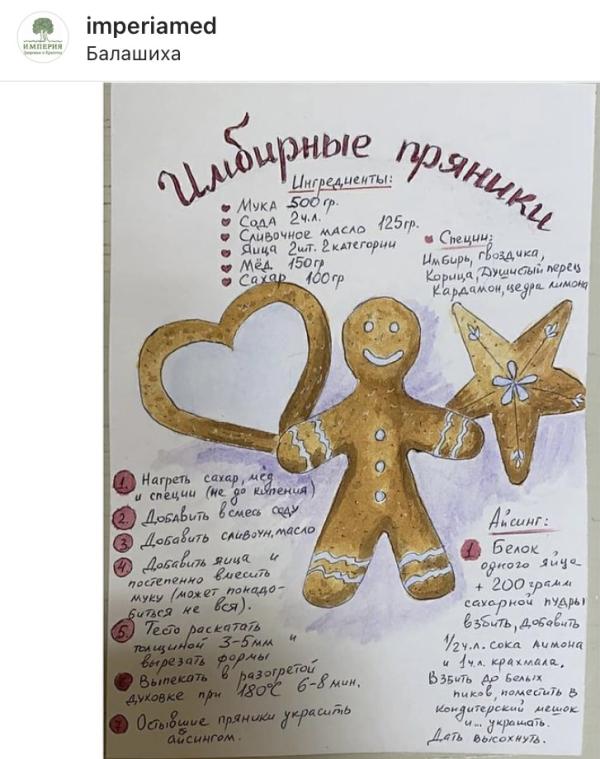 imperiamed
Балашиха
ИМПЕРИЯ
Имбирные пряники
Ингредиенты:
Мука 500гр.
Сода 2ч.л.
Сливочное масло 125гр.
Яица 2шт. 2 категории
Мёд 150гр
Сахар 100гр
Специи:
Имбирь, гвоздика,
Корица, Душистый перец
Кардамон, цедра лимона
1. Нагреть сахар, мёд
и специи (не до кипения)
2. Добавить в смесь соду
3 Добавить сливочн. масло
4 Добавить яица и
постепенно вмесить
муку (может понадо-
биться не вся).
5 Тесто раскатать
толщиной 3-5мм и
вырезать формы
6 Выпекать в разогретой
духовке при 180°С 6-8 мин.
7 Остывшие пряники украсить
айсингом.
Айсинг:
1 Белок
одного яйца
+ 200 грамм
сахарной пудры
взбить, добавить
1/2ч.л. сока лимона
и 1ч.л. крахмала.
Взбить до белых
пиков, поместить в
кондитерский мешок
и... украшать.
Дать высохнуть.